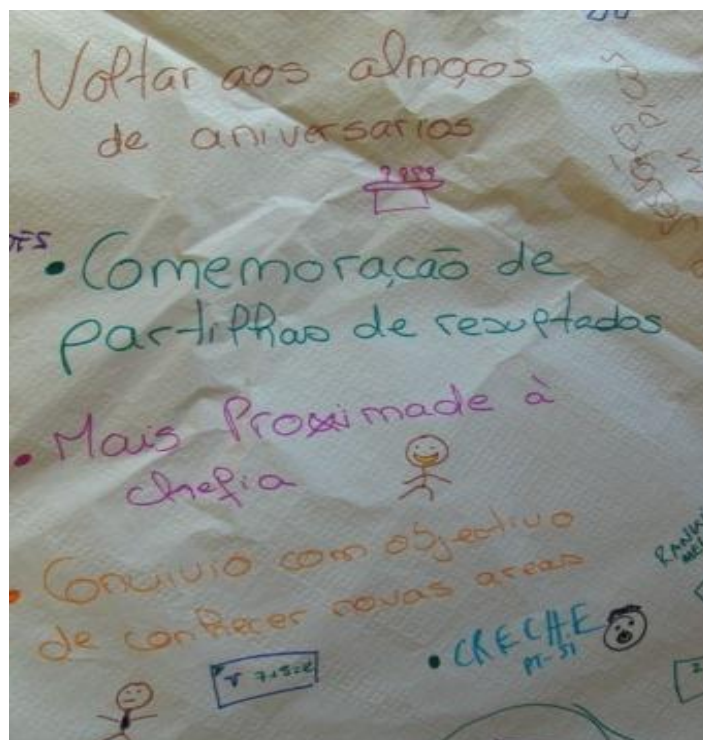 • Voltar aos almoços
de aniversarios
• Comemoração de
partilhas de resultados
• Mais Proximade à
chefia
• Convivio com objectivo
de conhecer novas areas
• CRECHE
PT-SI